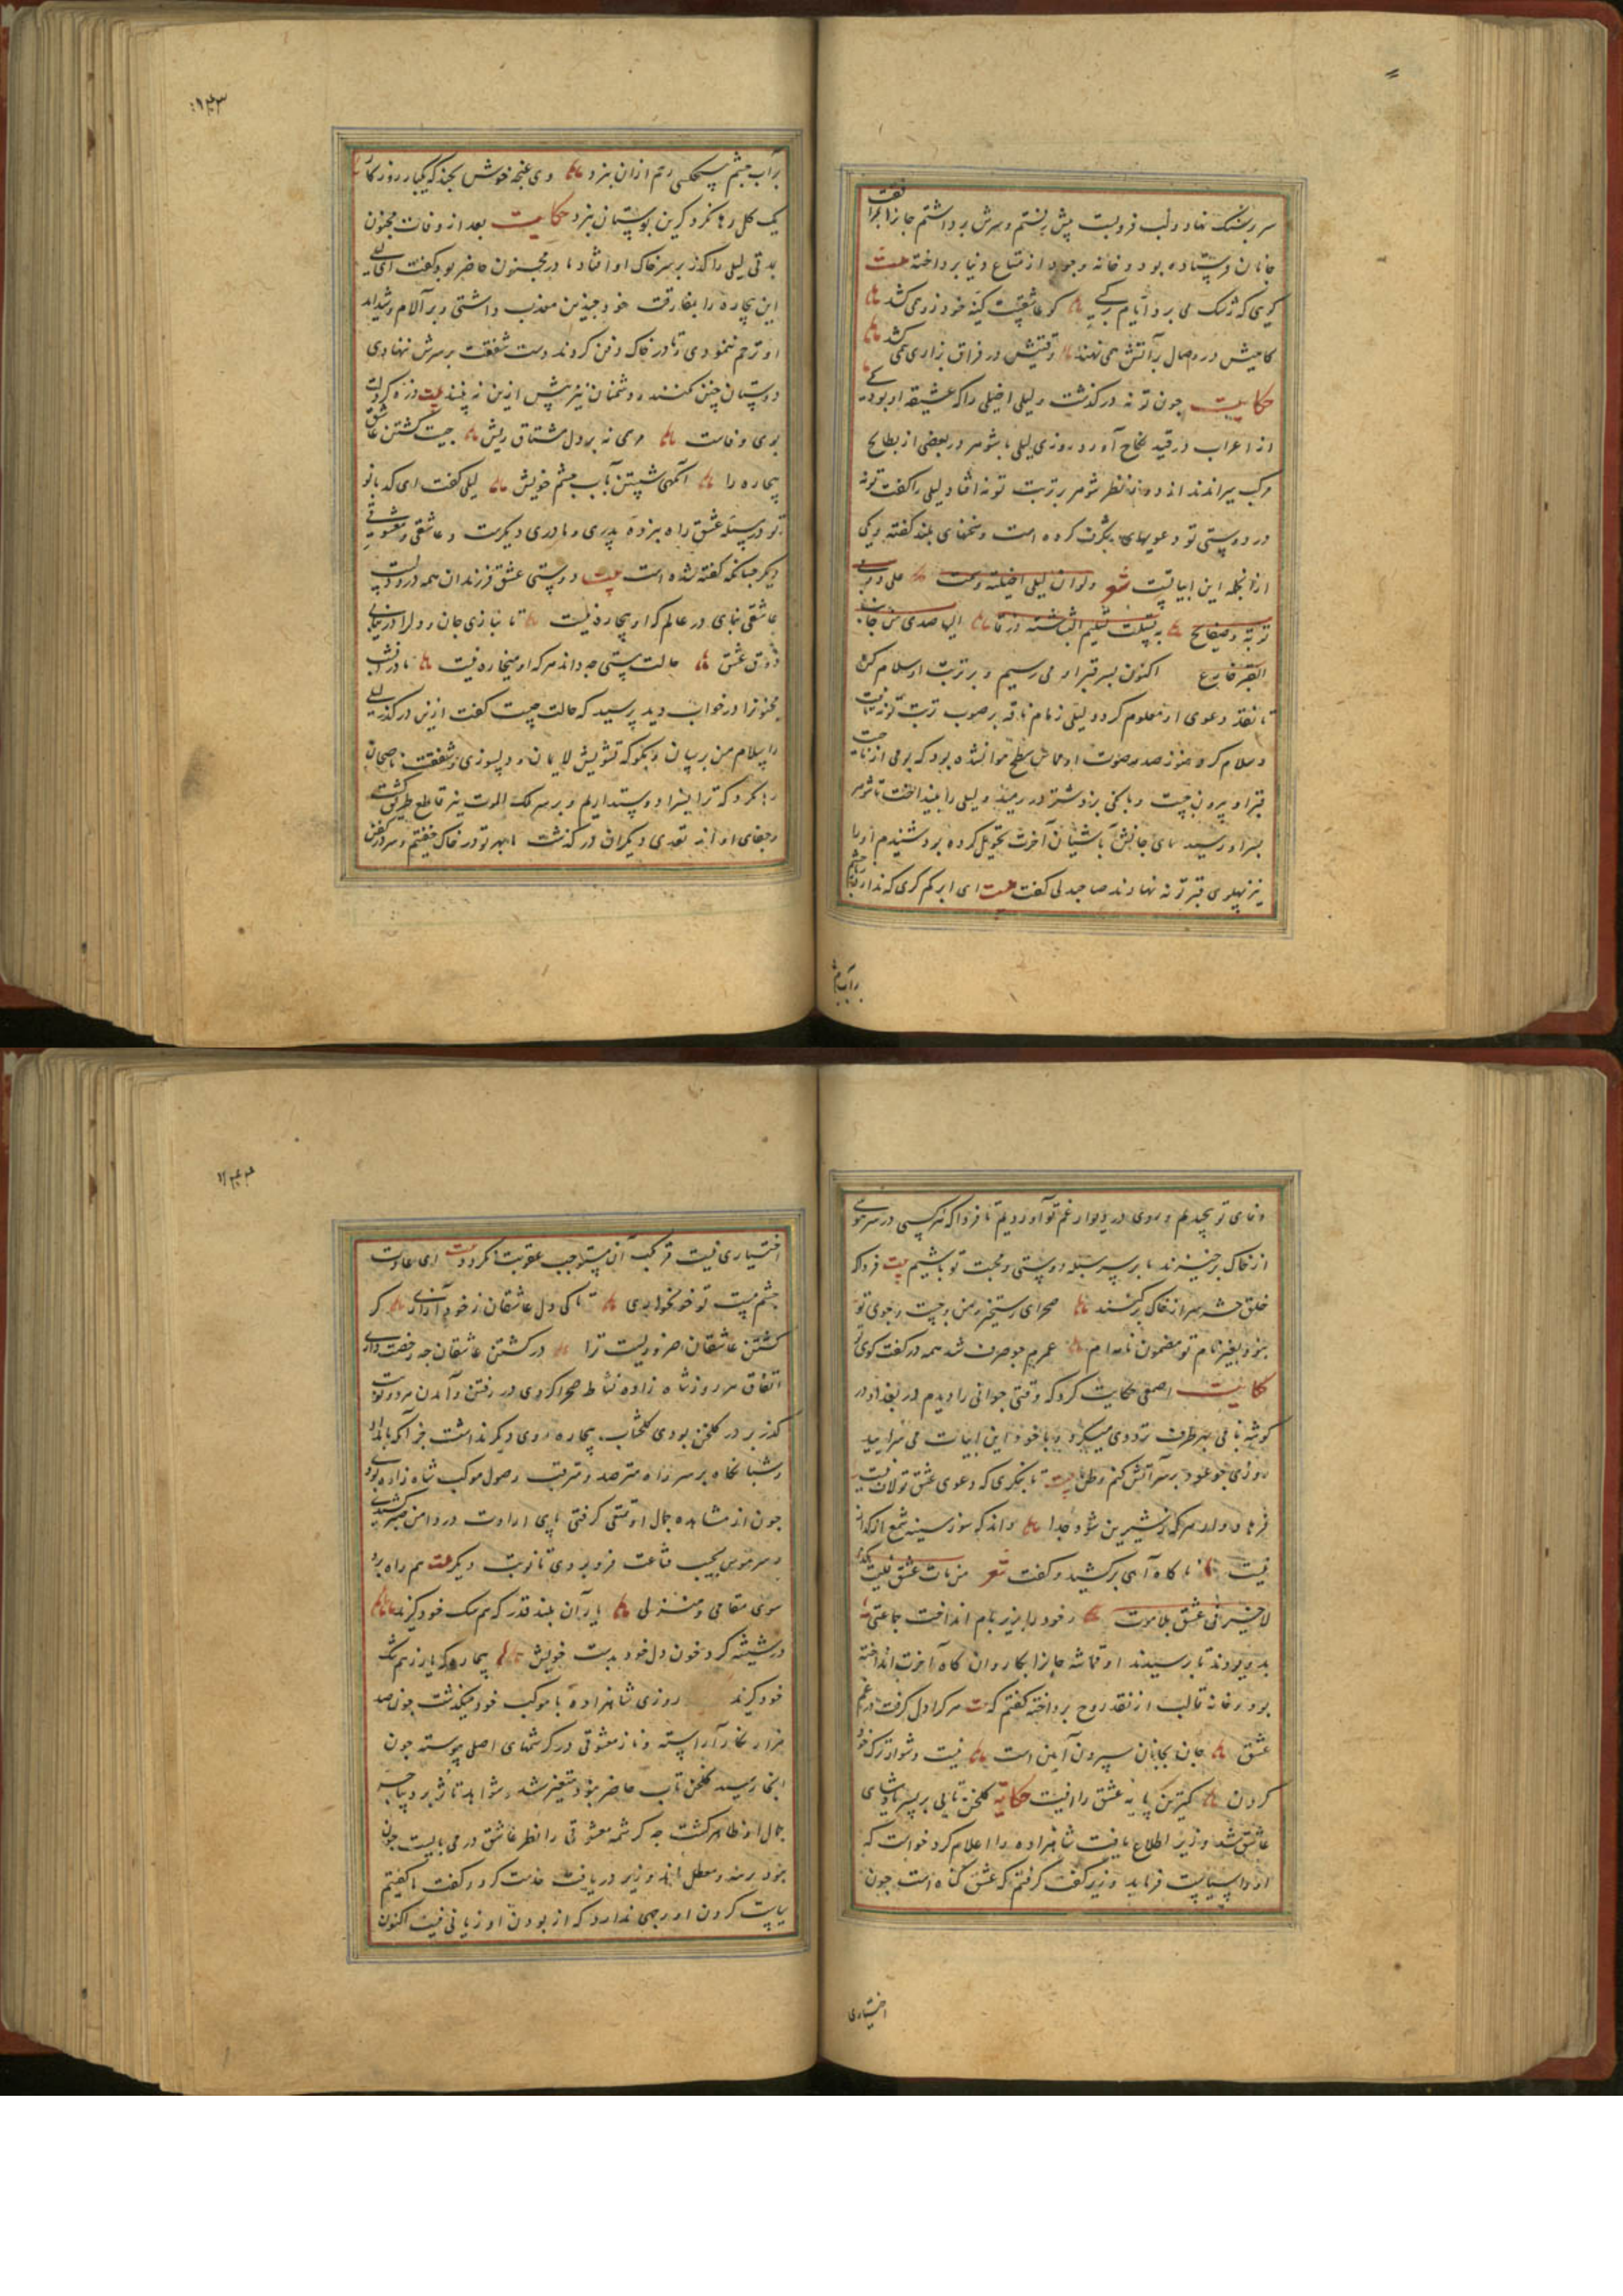 سر بسنگ نهاد و لب فرو بست پیش رفتم و سرش برداشتم جانرا
جانان فرستاده بود و خانه وجود از متاع دنیا پرداخته بیت
که عاشقیست کینه خود زو می کشد
گاهیش در وصال بر آتش همی نهند وقتیش در فراق بزاری همی کشد
حکایت چون توبه درگذشت و لیلی اخیلی را که عشیقه او بود یکی
از اعراب در قید نکاح آورد روزی لیلی با شوهر در بعضی از بطایح
مرکب میراندند نظر شوهر بر تربت توبه افتاد لیلی را گفت توبه
در دوستی تو دعویهای شگرف کرده است و سخنهای بلند گفته یکی
ازانجمله این ابیاتست شعر ولو ان لیلی اخیلیة سلمت علی و دونی
تربة و صفایح لسلمت تسلیم البشاشة او زقا الیها صدی من جانب
القبر صایح اکنون بسر قبر او می رسیم و بر تربت او سلام کن
تا نقد دعوی او معلوم گردد لیلی زمام ناقه بر صوب تربت توبه تافت
و سلام کرد هنوز صدی صوت او بود که بومی از جانب
قبر او بیرون جست و بانگی بزد شتر در رمید و لیلی را بینداخت تا شوهر
بسر او رسید های جانش باشیان آخرت تحویل کرده بود شنیدم او را
نیز پهلوی قبر توبه نهادند صاحبدلی گفت بیت ای ابر کرم گری که ندارد
بر آب چشم
۱۴۳
بر آب چشم هیچکسی رحم ازان بنزد وی غنچه خوش بخند که یکبار روزگار
یک گل رها نکرد کزین بوستان بنزد حکایت بعد از وفات مجنون
مدتی لیلی را گذر بر سر خاک او افتاد مادر مجنون حاضر بود گفت ای لیلی
این بیچاره را بمفارقت خود چندین معذب داشتی و بر آلام و شداید
او ترحم ننمودی تا در خاک دفن کردند دست شفقت بر سرش ننهادی
دوستان چنین نکنند و دشمنان نیز بیش ازین نپسندند بیت
بوی وفاست مرهمی نه بر دل مشتاق ریش چیست کشتن عاشق
بیچاره را آنگهی شستن بآب چشم خویش لیلی گفت ای کدبانو
تو در مسئله عشق راه نبرده پدری و مادری دیگرست و عاشقی و معشوقی
دیگر چنانکه گفته شده است بیت دوستی عشق فرزندان همه دردست
عاشقی بنمای در عالم که او بیچاره نیست تا نبازی جان و دل را در نیابی
ذوق عشق حالت مستی چه داند هر که او میخواره نیست مادر شب
مجنونرا در خواب دید پرسید که حالت چیست گفت ازین درگذر لیلی
را سلام من برسان و بگو که تشویش لایمان و دلسوزی و شفقت ناصحان
رها نکرد که ترا بسزا دوست داریم و بر سر ملک الموت نیز قاطع طریق گشت
و جفای او از تعدی دیگران در گذشت ما بمهر تو در خاک خفتیم و سر در کفن
وفای تو پیچیدیم و روی در دیوار غم تو آوردیم تا فردا که هر کسی در سر هوسی
از خاک برخیزند ما بر سر سبله دوستی و محبت تو باشیم بیت فردا که
خلق حشر سر از خاک برکنند صحرای رستخیز و من و جست و جوی تو
نبود بغیر نام تو مضمون نامه ام عمرم چو صرف شد همه در گفت گوی تو
حکایت اصمعی حکایت کرد که وقتی جوانی را دیدم در بغداد در
گوشه بامی بهر طرف ترددی میکرد و با خود این ابیات می سرایید
روزی چو عود بر سر آتش کنم وطن بیت تا بنگری که دعوی عشق تو لاف نیست
فرهاد وار هر که ز شیرین شود جدا داند که سوز سینه شمع از گزاف
نیست ناگاه آهی برکشید و گفت شعر من مات عشقا فلیمت هکذا
لا خیر فی عشق بلا موت و خود را بزیر بام انداخت جماعتی
بدویدند تا برسیدند او قماشه جانرا بکاروان گاه آخرت انداخته
بود و خانه قالب از نقد روح پرداخته گفتم که بیت هر کرا دل گرفت در غم
عشق جان بجانان سپردن آیین است نیست دشوار ترک خود
کردن کمترین پایه عشق را اینست حکایة گلخن تابی بر پسر پادشاهی
عاشق شد وزیر اطلاع یافت شاهزاده را اعلام کرد خواست که
او را سیاست فرماید وزیر گفت گرفتم که عشق گناه است چون
اختیاری
۱۴۴
اختیاری نیست مرتکب آن مستوجب عقوبت نگردد بیت ای عادت
چشم مست تو خونخواری تا کی دل عاشقان ز خود آزاری گر
کشتن عاشقان ضروریست ترا در کشتن عاشقان چه رخصت داری
اتفاق هر روز شاه زاده نشاط صحرا کردی در رفتن و آمدن مرورش
گذر بر در گلخن بودی گلختاب بیچاره روی دیگر نداشت جز آنکه بامداد
و شبانگاه بر سر راه مترصد و مترقب وصول موکب شاه زاده بودی
چون از مشاهده جمال او تمتعی گرفتی پای ارادت در دامن صبر کشیدی
و سر هوس بجیب قناعت فرو بردی تا نوبت دیگر بیت هم راه برد
سوی مقامی و منزلی یاران بلند قدر که هم سک خود گزند
در شیشه کرد خون دل خود بدست خویش بیچاره که یار ز هم تنگ
خود گزند روزی شاهزاده با موکب خود میگذشت چون صد
هزار نگار آراسته و ناز معشوقی در کرشمهای اصلی پیوسته چون
آنجا رسید گلخن تاب حاضر نبود متغیر شد و شواهد تاثر بر دیباجه
جمال او ظاهر گشت چه کرشمه معشوقی را نظر عاشق در می بایست چون
نبود برمید و معطل ماند وزیر دریافت خدمت کرد و گفت ما گفتیم
سیاست کردن او وجهی ندارد که از بودن او زیانی نیست اکنون